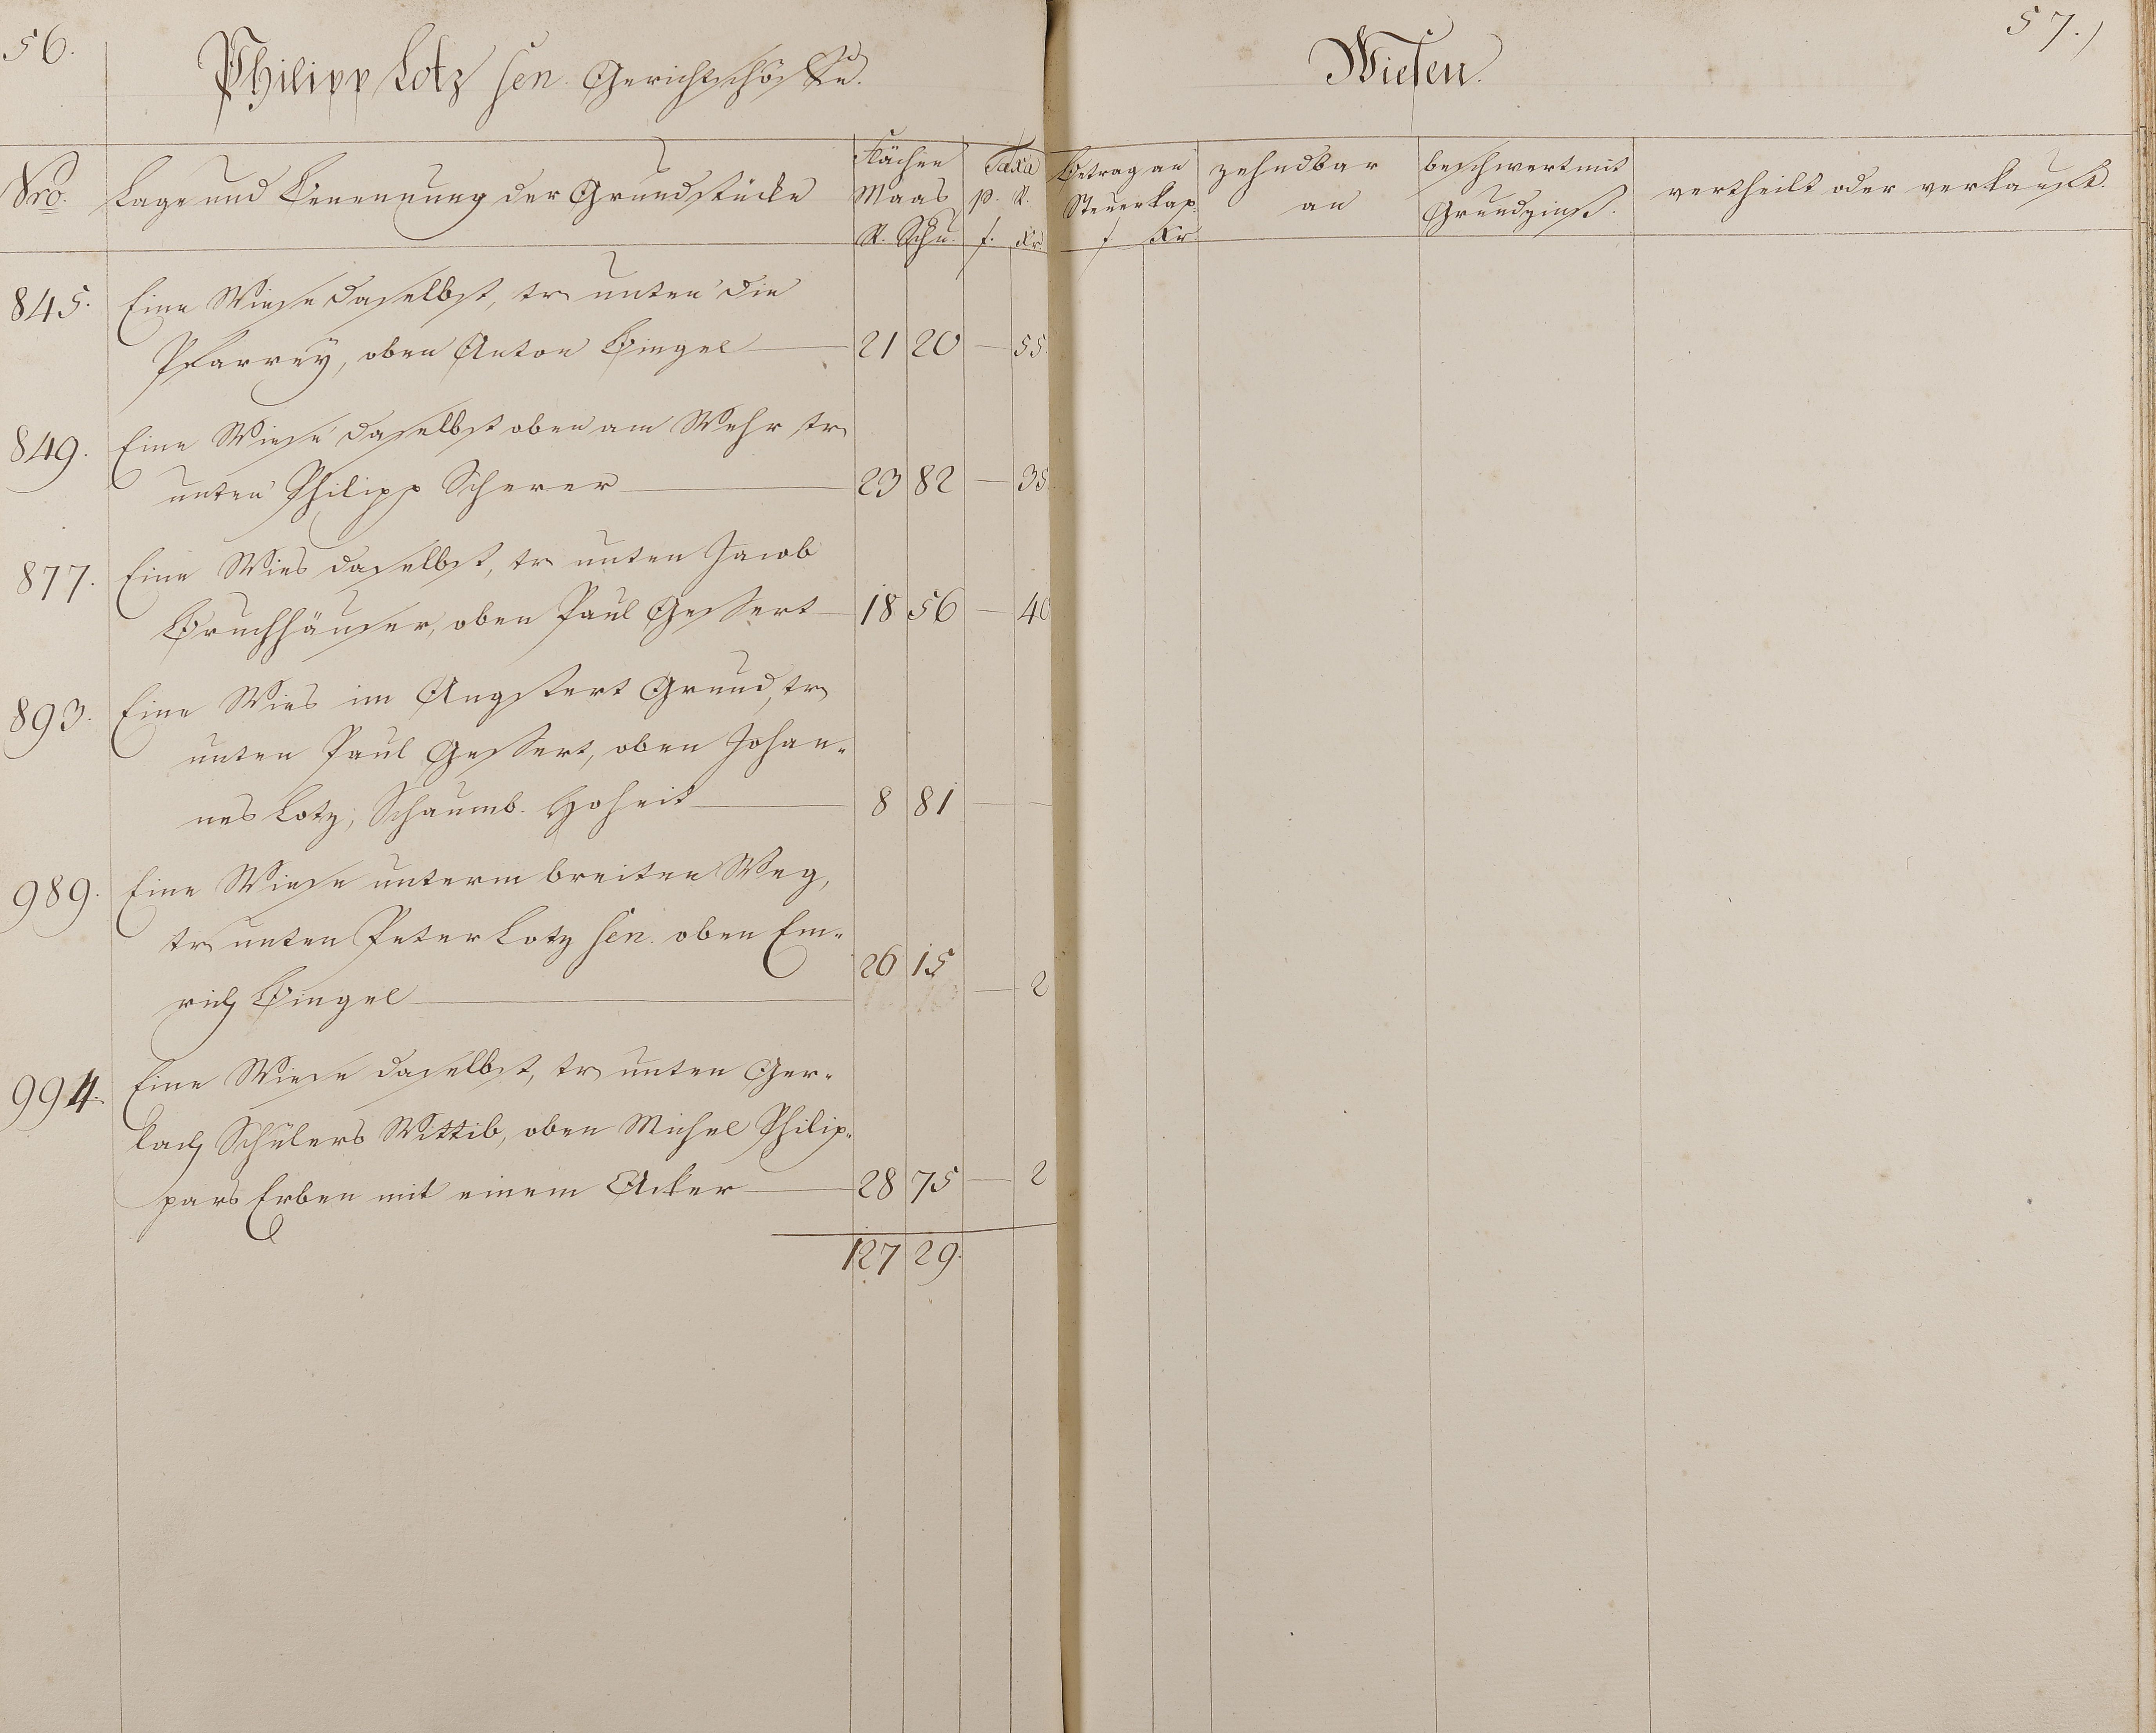 56.
Philipp Lotz sen. Gerichtschöffe.
Nro. Lage und Benennung der Grundstücke Flächen Maas R. Schu. Taxa p. R. f. Kr
845. Eine Wiese daselbst, tr unten die
Pfarrey, oben Anton Bingel — 21 20 — 55
849. Eine Wiese daselbst oben am Wehr tr
unten Philipp Scherer — 23 82 — 35
877. Eine Wies daselbst, tr unten Jacob
Bruchhäuser, oben Paul Gessert — 18 56 — 40
893. Eine Wies im Angstert Grund, tr
unten Paul Gessert, oben Johan-
nes Lotz, Schaumb. Hoheit — 8 81 — —
989. Eine Wiese unterm breiten Weg,
tr unten Peter Lotz sen. oben Em-
rich Bingel — 26 15 — 2
994. Eine Wiese daselbst, tr unten Ger-
lach Schülers Wittib, oben Michel Philip-
pars Erben mit einem Acker — 28 75 — 2
127 29.
57.
Wiesen.
Betrag an Steuerkap. f Kr. zehndbar an beschwert mit Grundzinß. vertheilt oder verkauft.